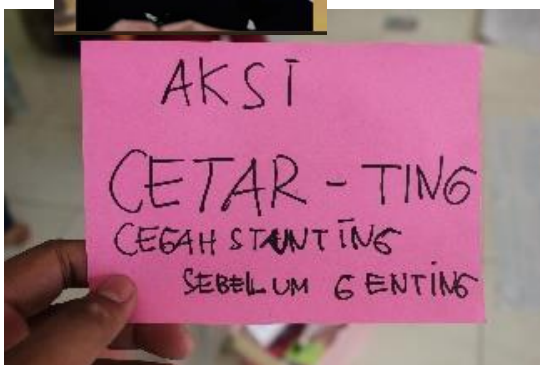 AKSI
CETAR - TING
CEGAH STUNTING
SEBELUM GENTING